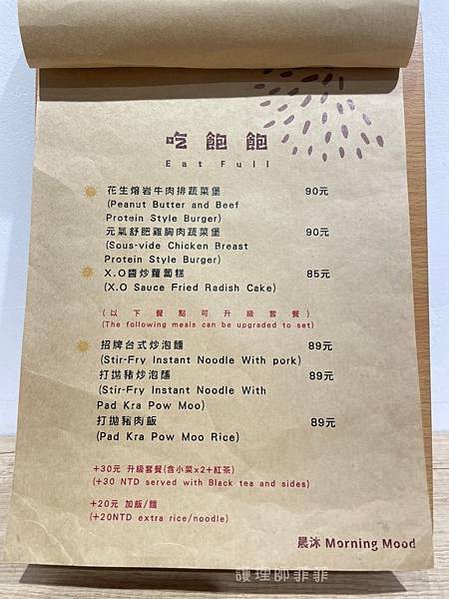 吃飽飽
Eat Full
花生熔岩牛肉排蔬菜堡 90元
(Peanut Butter and Beef
Protein Style Burger)
元氣舒肥雞胸肉蔬菜堡 90元
(Sous-vide Chicken Breast
Protein Style Burger)
X.O醬炒蘿蔔糕 85元
(X.O Sauce Fried Radish Cake)
(以下餐點可升級套餐)
(The following meals can be upgraded to set)
招牌台式炒泡麵 89元
(Stir-Fry Instant Noodle With pork)
打拋豬炒泡麵 89元
(Stir-Fry Instant Noodle With
Pad Kra Pow Moo)
打拋豬肉飯 89元
(Pad Kra Pow Moo Rice)
+30元 升級套餐(含小菜x2+紅茶)
(+30 NTD served with Black tea and sides)
+20元 加飯/麵
(+20NTD extra rice/noodle)
晨沐 Morning Mood
護理師菲菲